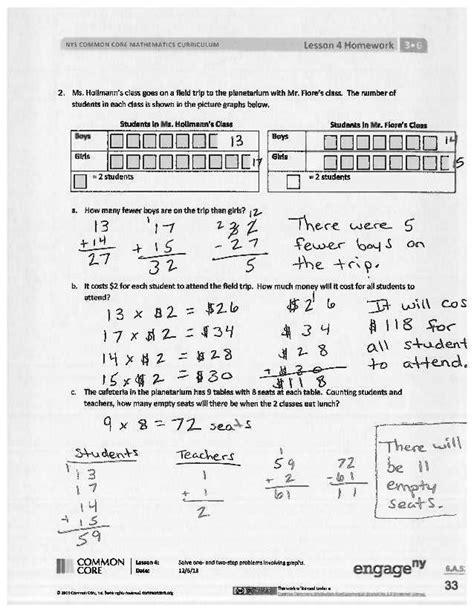 NYS COMMON CORE MATHEMATICS CURRICULUM
Lesson 4 Homework 3•6
2. Ms. Hollmann's class goes on a field trip to the planetarium with Mr. Fiore's class. The number of
students in each class is shown in the picture graphs below.
Students in Ms. Hollmann's Class
Students in Mr. Fiore's Class
Boys 13
Boys 14
Girls 17
Girls 15
= 2 students
= 2 students
a. How many fewer boys are on the trip than girls?
13 17 32 There were 5
+14 + 15 - 27 fewer boys on
27 32 5 the trip.
b. It costs $2 for each student to attend the field trip. How much money will it cost for all students to
attend?
13 × $2 = $26
17 × $2 = $34
14 × $2 = $28
15 × $2 = $30
$26
$34
$28
+ $30
It will cos
$118 for
all student
to attend.
c. The cafeteria in the planetarium has 9 tables with 8 seats at each table. Counting students and
teachers, how many empty seats will there be when the 2 classes eat lunch?
9 × 8 = 72 seats
Students Teachers
13
17
14
+ 15
59
1
+ 1
2
59
+ 2
61
72
- 61
11
There will
be 11
empty
seats.
COMMON CORE
Lesson 4: Solve one- and two-step problems involving graphs.
Date: 12/6/13
engageny
6.A.5
33